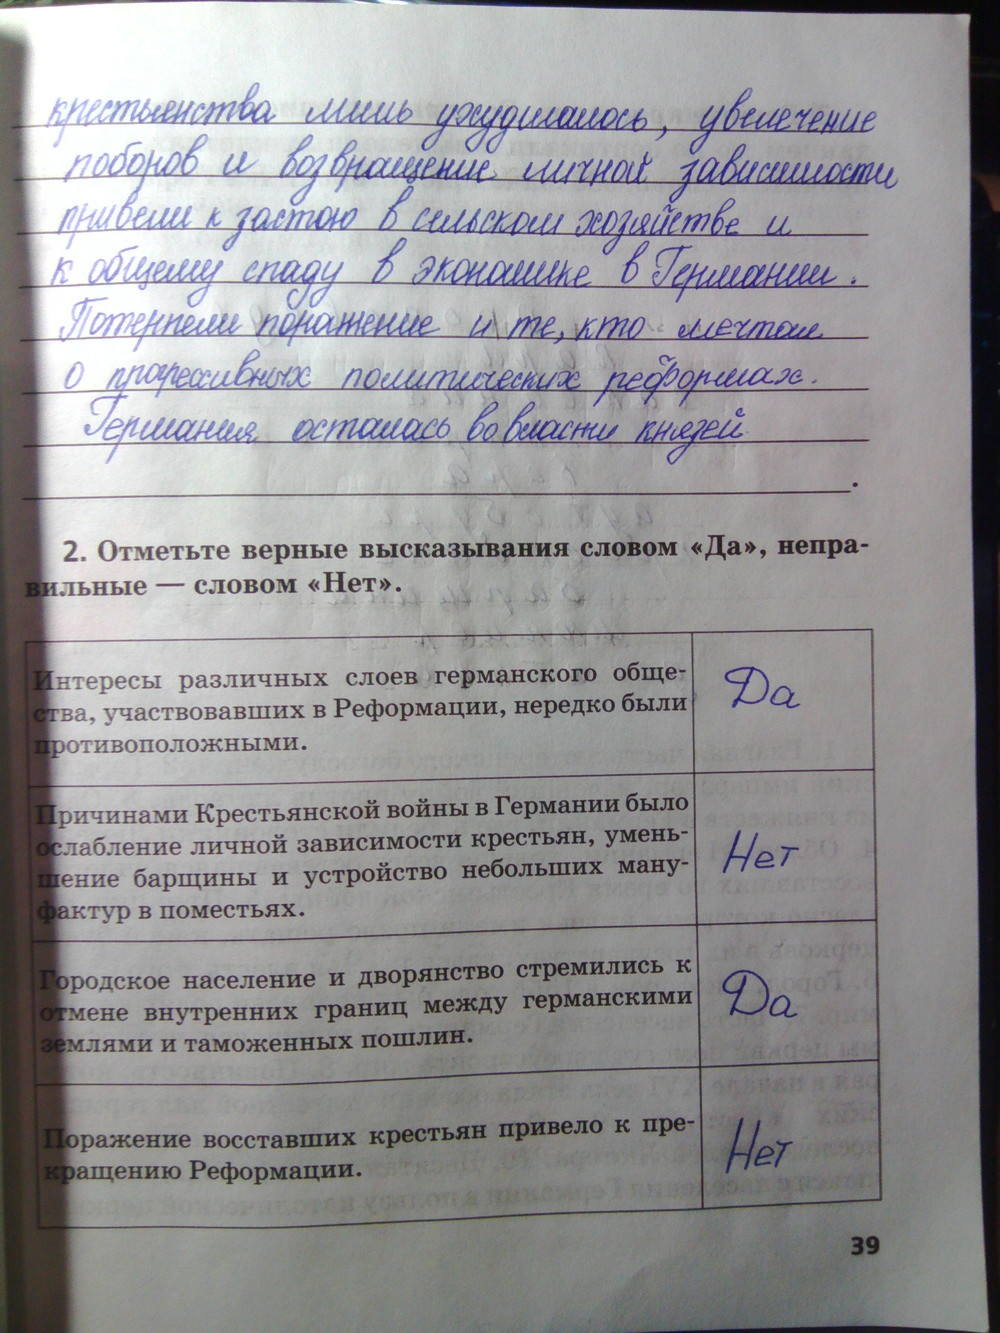 крестьянства лишь ухудшалось, увеличение
поборов и возвращение личной зависимости
привели к застою в сельском хозяйстве и
к общему спаду в экономике в Германии.
Потерпели поражение и те, кто мечтал
о прогрессивных политических реформах.
Германия осталась во власти князей
.
2. Отметьте верные высказывания словом «Да», непра-
вильные — словом «Нет».
Интересы различных слоев германского обще-
ства, участвовавших в Реформации, нередко были
противоположными.
Да
Причинами Крестьянской войны в Германии было
ослабление личной зависимости крестьян, умень-
шение барщины и устройство небольших ману-
фактур в поместьях.
Нет
Городское население и дворянство стремились к
отмене внутренних границ между германскими
землями и таможенных пошлин.
Да
Поражение восставших крестьян привело к пре-
кращению Реформации.
Нет
39